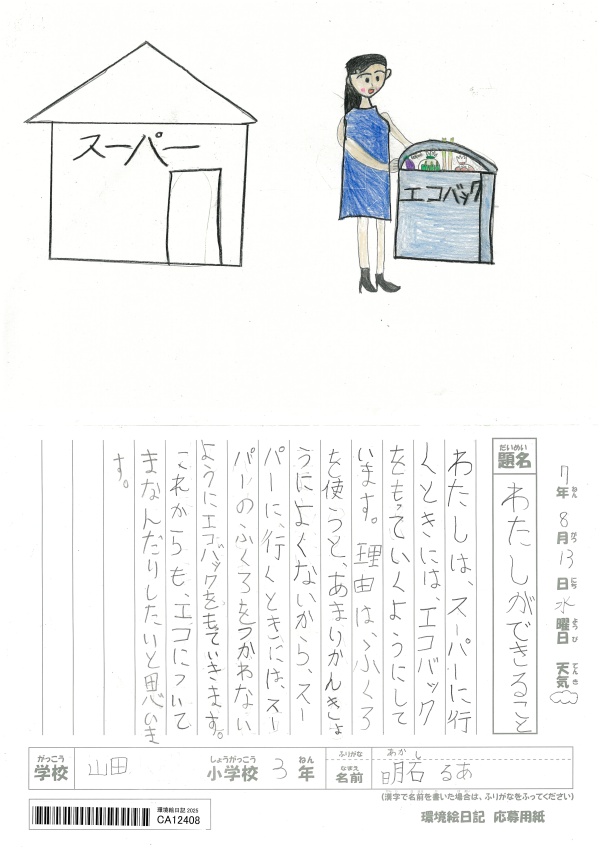 スーパー
エコバック
7年8月13日水曜日 天気
ねん がつ にち ようび てんき
だいめい
題名
わたしができること
わたしは、スーパーに行
くときには、エコバック
をもっていくようにして
います。理由は、ふくろ
を使うと、あまりかんきょ
うによくないから、スー
パーに、行くときには、スー
パーのふくろをつかわない
ようにエコバックをもていきます。
これからも、エコについて
まなんだりしたいと思いま
す。
がっこう
学校 山田
しょうがっこう ねん
小学校 3年
ふりがな あかし
なまえ
名前 明石 るあ
(漢字で名前を書いた場合は、ふりがなをふってください)
環境絵日記 2025
CA12408
環境絵日記 応募用紙